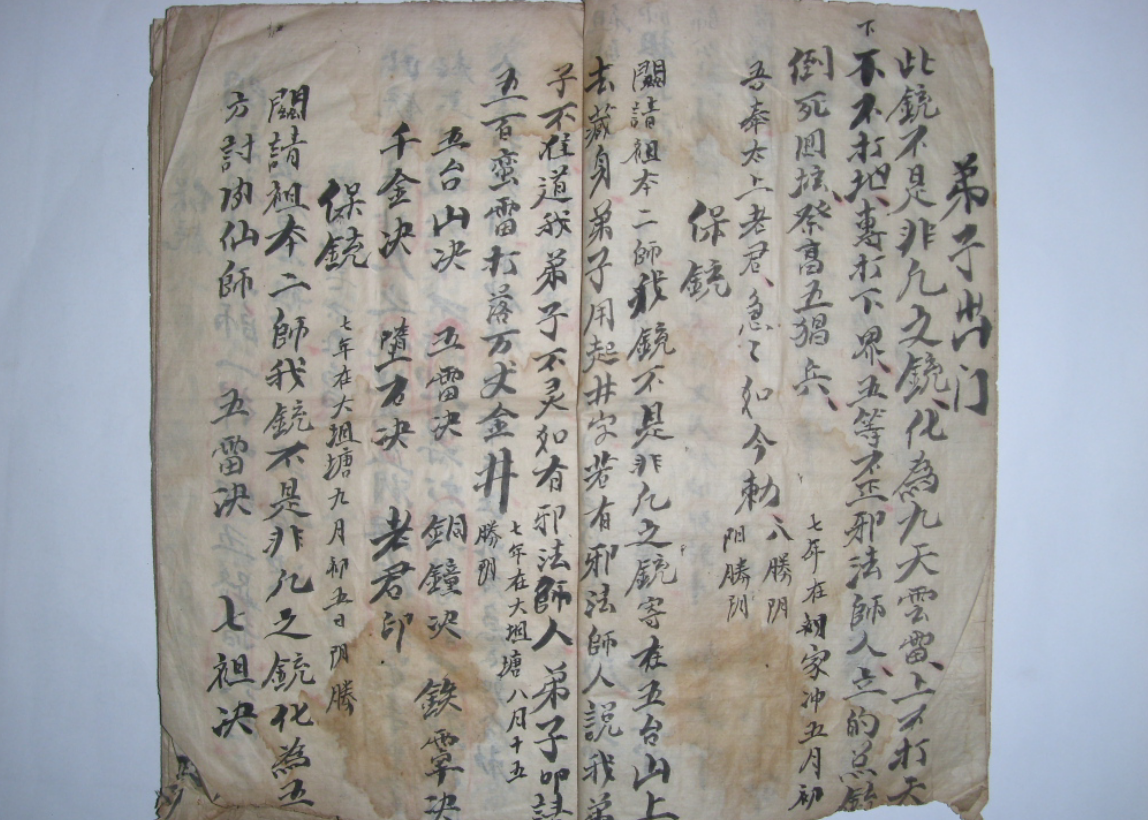 弟子出门
此鏡不是非凡之鏡化為九天雲雷上不打天
下不打地專打下界五等不正邪法師人立的
倒死回壇祭高五猖兵
七年在 家冲五月初
吾奉太上老君急々如今勅
八勝阴
阳勝阴
保鏡
闘請祖本二師我鏡不是非凡之鏡寄在五台山上
去藏身弟子用起井字若有邪法師人說我弟
子不准道我弟子不灵如有邪法師人弟子叩請
五百蛮雷打落万丈金井
七年在大坦塘八月十五
勝阴
五台山决 五雷决 銅鐘决 鉄 决
千金决 墮石决 老君印
保鏡
七年在大坦塘九月初五日阴勝
闘請祖本二師我鏡不是非凡之鏡化為五
方討 仙師 五雷决 七祖决